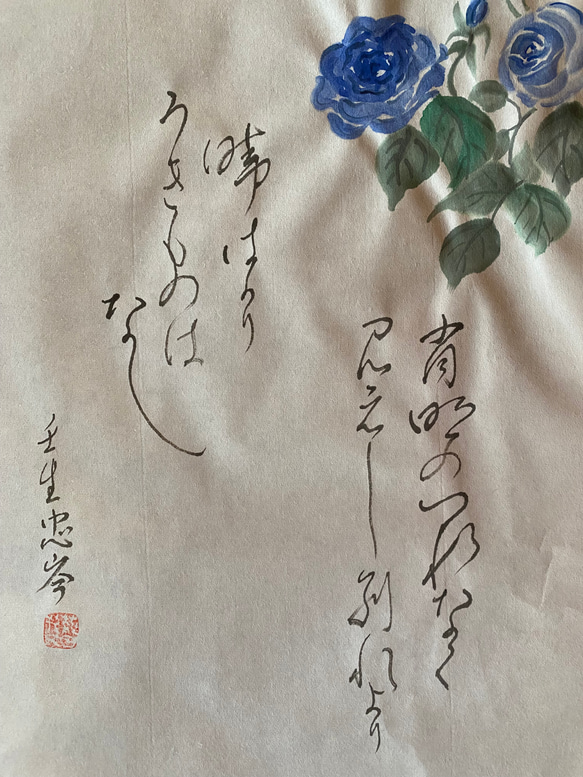 有明のつれなく
見えし別れより
暁はかり
うきものは
なし
壬生忠岑